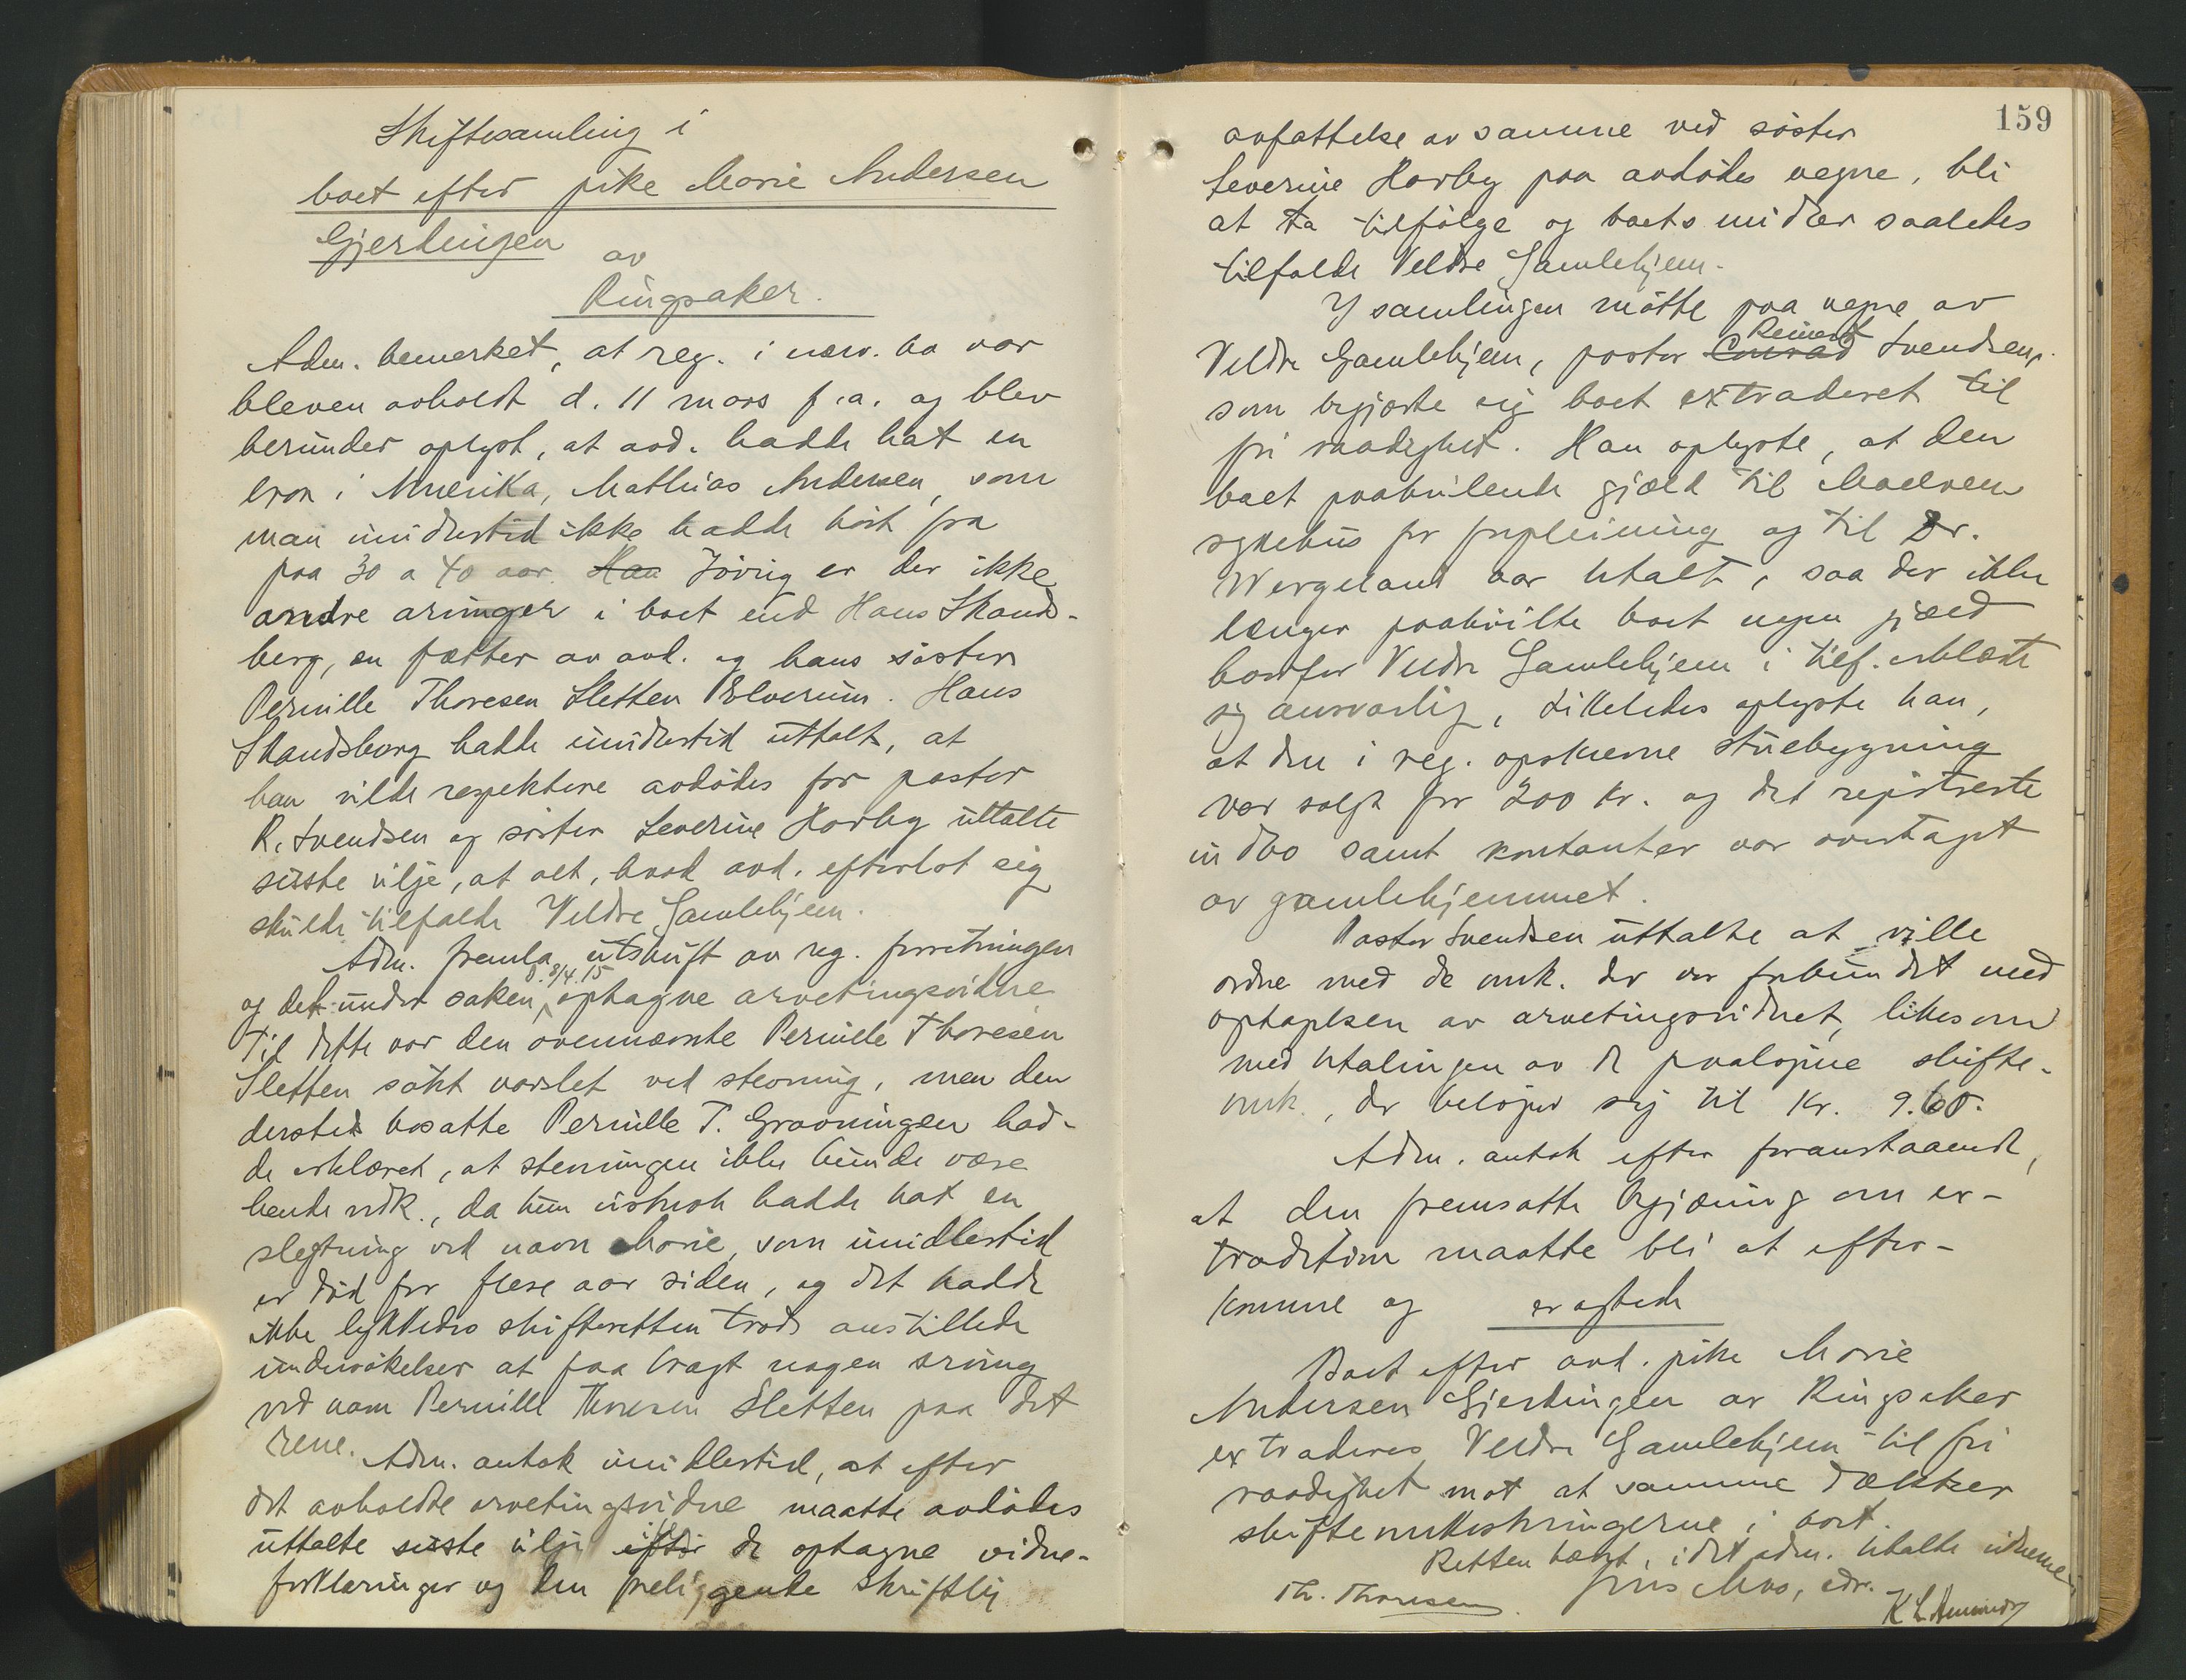 Skiftesamling i
boet efter pike Marie Andersen
Gjerlingen
av
Ringsaker.
Adm. bemerket, at reg. i nærv. bo var
bleven avholdt d. 11 mars f.a. og blev
herunder oplyst, at avd. hadde hat en
bror i Amerika, Mathias Andersen, som
man imidlertid ikke hadde hört fra
paa 30 a 40 aar. Han Iövrig er der ikke
andre arvinger i boet end Hans Skands-
berg, en fætter av avd. og hans söster
Pernille Thoresen Sletten Elverum. Hans
Skandsberg hadde imidlertid uttalt, at
han vilde respektere avdödes for pastor
R. Svendsen og söster Severine Harby uttalte
siste vilje, at alt, hvad avd. efterlot sig
skulde tilfalde Veldre Gamlehjem.
Adm. fremla utskrift av reg. forretningen
og det under saken d. 8/4.15 optagne arvetingsvidne
Til dette var den ovennævnte Pernille Thoresen
Sletten sökt varslet ved stevning, men den
dersteds bosatte Pernille T. Gravningen had-
de erklæret, at stevningen ikke kunde være
hende vedk., da hun istnok hadde hat en
slegtning ved navn Marie, som imidlertid
er död for flere aar siden, og det hadde
ikke lykkedes skifteretten trods anstillede
undersökelser at faa bragt nogen arving
ved navn Pernille Thoresen Sletten paa det
rene.
Adm. antok imidlertid, at efter
det avholdte arvetingsvidne maatte avdödes
uttalte siste vilje efter de optagne vidne-
forklaringer og den foreliggende skriftlig
159
avfattelse av samme ved söster
Severine Harby paa avdödes vegne, bli
at ta tilfölge og boets midler saaledes
tilfalde Veldre Gamlehjem.
I samlingen mötte paa vegne av
Veldre Gamlehjem, pastor Conrad Reinert Svendsen,
som begjærte sig boet extraderet til
fri raadighet. Han oplyste, at den
boet paahvilende gjæld til Moelven
sykehus for forpleining og til Dr.
Wergeland var betalt, saa der ikke
længer paahvilte boet nogen gjæld
hvorfor Veldre Gamlehjem i tilf. erklærte
sig ansvarlig, likeledes oplyste han,
at den i reg. opskrevne stuebygning
var solgt for 200 kr. og det registrerte
indbo samt kontanter var overtaget
av gamlehjemmet.
Pastor Svendsen uttalte at ville
ordne med de omk. der var forbundet med
optagelsen av arvetingsvidnet, likesom
med betalingen av de paalöpne skifte-
omk., der belöper sig til kr. 9.60.
Adm. antok efter foranstaaende,
at den fremsatte begjæring om ex-
tradition maatte bli at efter-
komme og eragtede
Boet efter avd. pike Marie
Andersen Gjerlingen av Ringsaker
extraderes Veldre Gamlehjem til fri
raadighet mot at samme dækker
skifteomkostningerne i boet.
Retten hævet, idet adm. betalte vidnerne
Th. Thoresen
Jens Moo, edv.